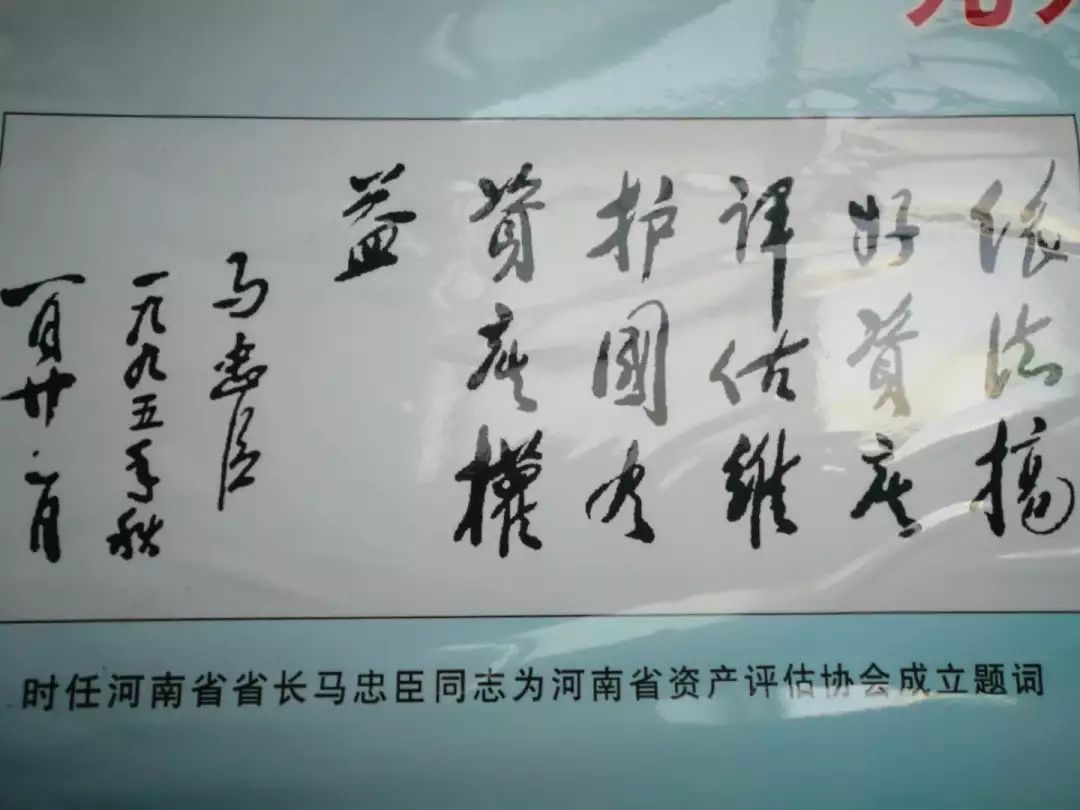 依法搞
好資产
评估維
护國有
資产權
益
马忠臣
一九九五年秋
月廿 日
时任河南省省长马忠臣同志为河南省资产评估协会成立题词